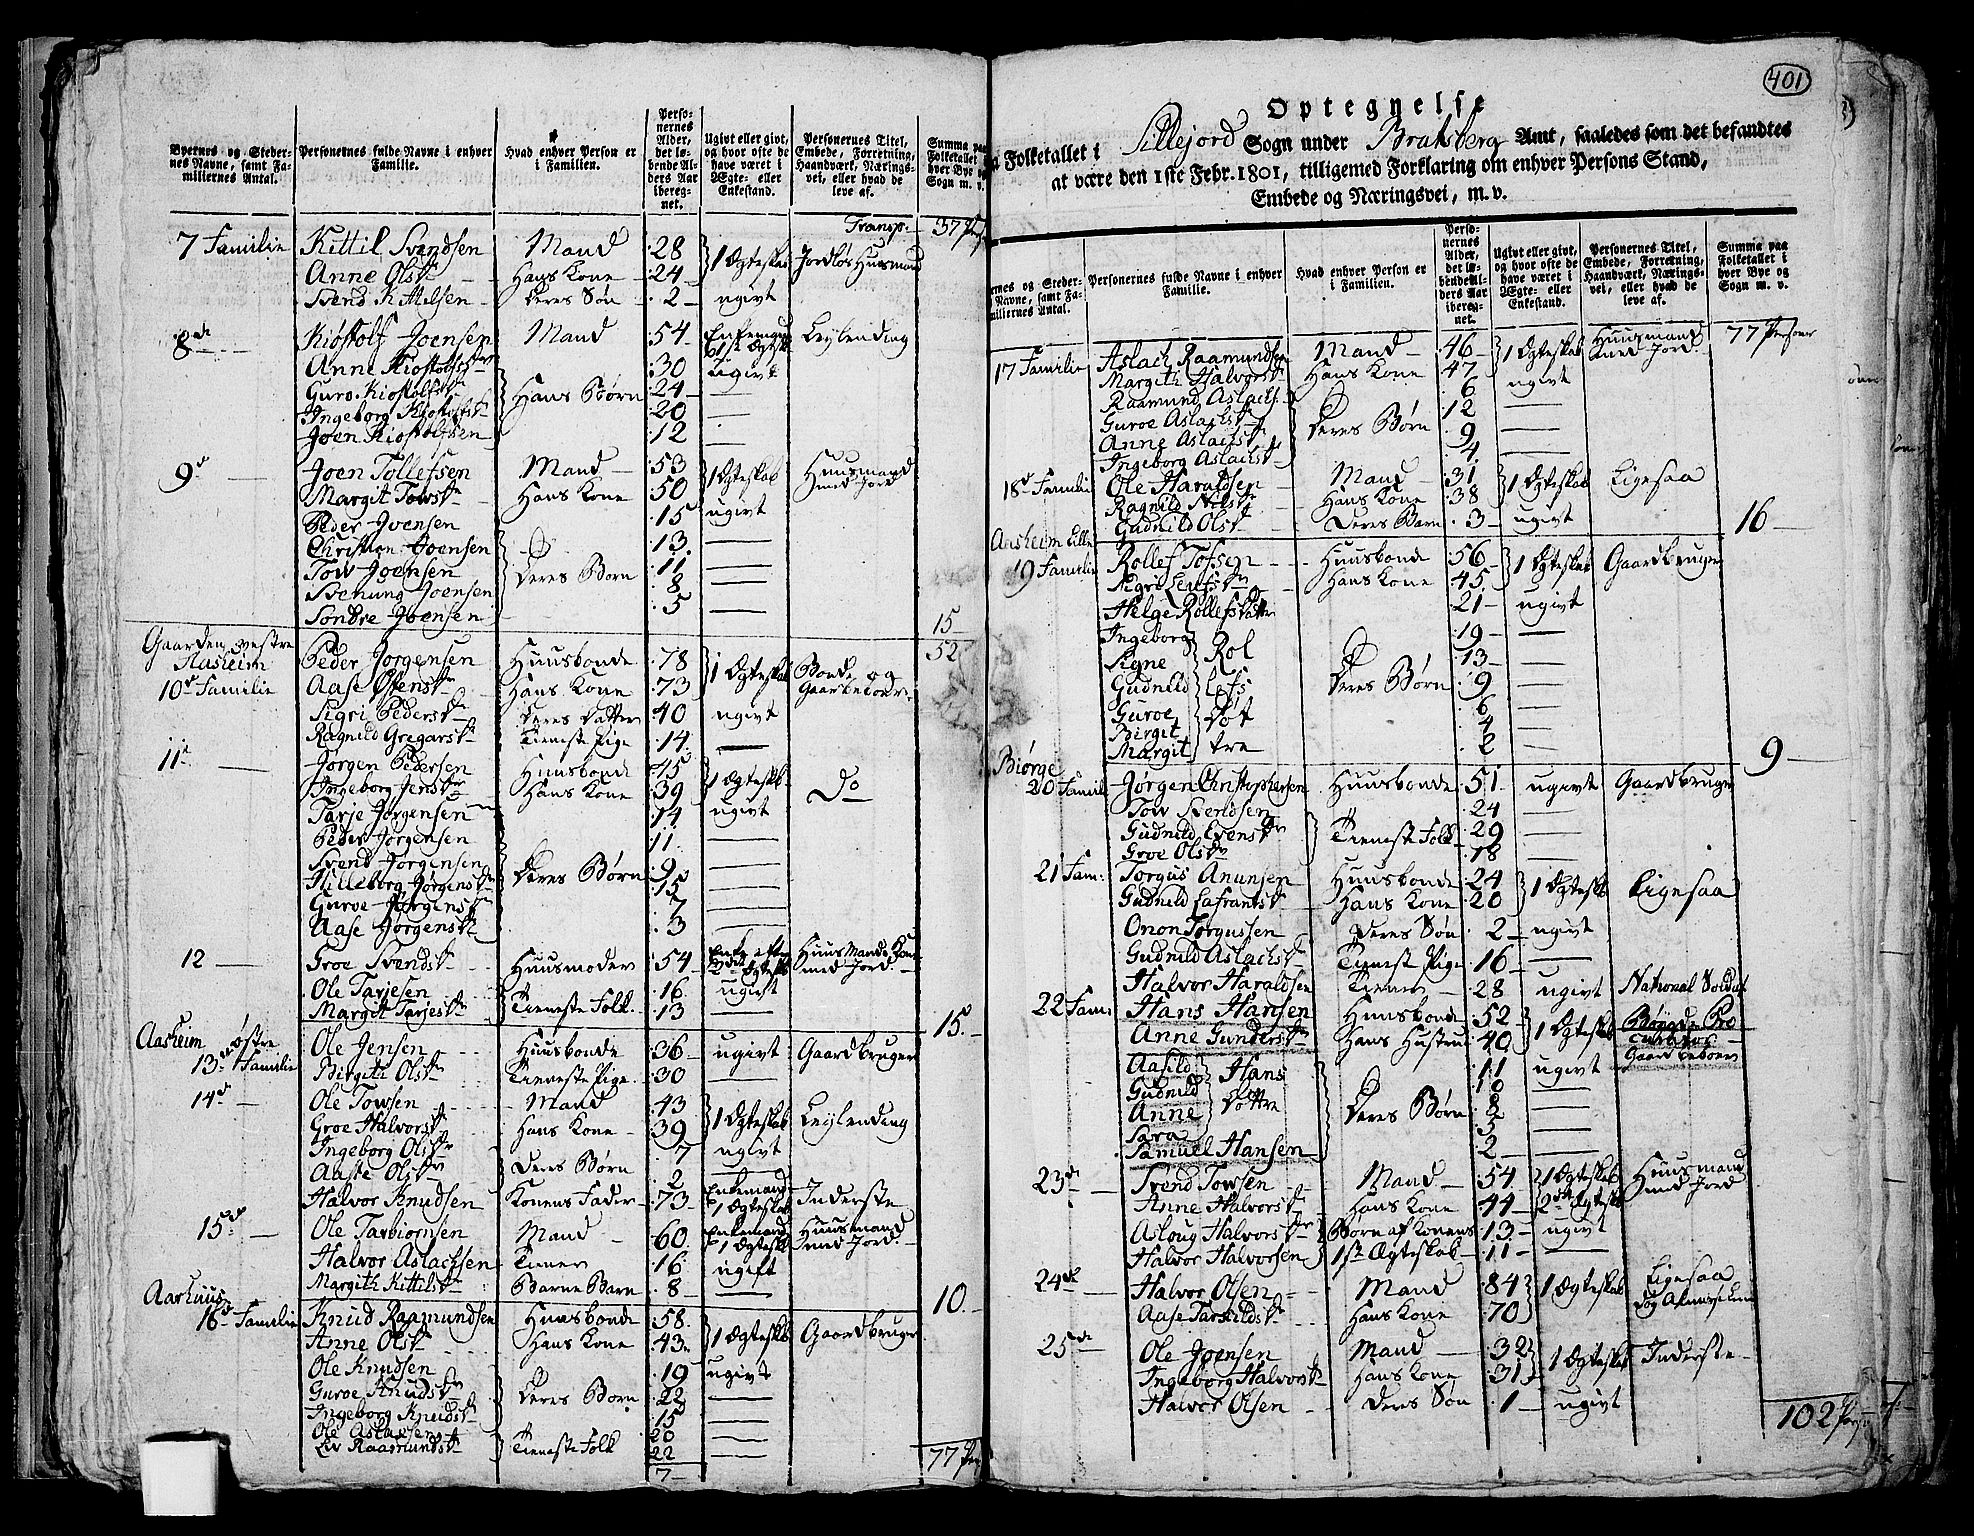 Byernes og Steder-
nes Navne, samt Fa-
miliernes Antal.
Personernes fulde Navne i enhver
Familie.
Hvad enhver Person er
i Familien.
Perso-
nernes
Alder,
det lø-
bende Al-
ders Aar
ibereg-
net.
Ugivt eller givt,
og hvor ofte de
have været i
Ægte- eller
Enkestand.
Personernes Titel,
Embede, Forretning,
Haandværk, Nærings-
vei, eller hvad de
leve af.
Summa paa
Folketallet i
hver Bye og
Sogn m. v.
Transp. 37
7 Familie Kittil Svendsen Mand 28 1 Ægteskab Jordløs Huusmand
Anne Olsdr Hans Kone 24
Svend Kittilsen Deres Søn 2 ugivt
8de Kiøstolf Joensen Mand 54 Enkemand 1ste Ægtesk. Leylending
Anne Kiøstolfsdr 30 ugivt
Guro Kiostolfsdr Hans Børn 24 —
Ingeborg Kiostolfsdr 20 —
Joen Kiostolfsen 12 —
9de Joen Tollefsen Mand 53 1 Ægteskab Huusmand med Jord
Margit Towsdr Hans Kone 50
Peder Joensen 15 ugivt
Christian Joensen 13 —
Tow Joensen Deres Børn 11 —
Svenung Joensen 8 —
Sondre Joensen 5 —
15
Gaarden vestre Aasheim 52
10de Familie Peder Jorgensen Huusbonde 78 1 Ægteskab Bonde og Gaardbeboer
Aase Ofensdr Hans Kone 73
Sigri Pedersdr Deres Datter 40 ugivt
Ragnild Gregarsdr Tieneste Pige 14 —
11te Jørgen Pedersen Huusbonde 45 1 Ægteskb. Do
Ingeborg Jensdr Hans Kone 39
Tarje Jørgensen 14 ugivt
Peder Jørgensen 11 —
Svend Jørgensen Deres Børn 9 —
Hilleborg Jørgensdr 15 —
Guroe Jørgensdr 7 —
Aase Jørgensdr 3 —
12 Groe Svendsdr Huusmoder 54 Enke efter Ægtesk. Huus Mands Kone med Jord
Ole Tarjesen Tieneste Folk 16 ugivt
Margit Tarjesdr 13 —
15
Aasheim østre
13de Familie Ole Jensen Huusbonde 36 ugivt Gaardbruger
Birgith Olsdr Tieneste Pige 30 —
14de Ole Towsen Mand 43 1 Ægteskab Leylending
Groe Halvorsdr Hans Kone 39
Ingeborg Olsdr Deres Børn 7 ugivt
Aaste Olsdr 2 —
Halvor Knudsen Konens Fader 73 Enkemand 1 Ægteskab Inderste
15de Ole Tarbiornsen Mand 60 Enkemand 1 Ægteskb. Huusmand med Jord
Halvor Aslachsen Tiener 16 ugift
Margith Kittilsdr Barne Barn 8 —
10
Aarhuus
16de Familie Knud Raamundsen Huusbonde 58 1 Ægteskb Gaardbruger
Anne Olsdr Hans Kone 43
Ole Knudsen 19 ugivt
Guroe Knudsdr Deres Børn 22 —
Ingeborg Knudsdr 15 —
Ole Aslacsen Tieneste Folk 20 —
Liv Raamundsdr 22 —
7
77
401
Optegnelse
Folketallet i Sillejord Sogn under Bratsberg Amt, saaledes som det befandtes
at være den 1ste Febr. 1801, tilligemed Forklaring om enhver Persons Stand,
Embede og Næringsvei, m. v.
nes og Steder-
Navne, samt Fa-
miliernes Antal.
Personernes fulde Navne i enhver
Familie.
Hvad enhver Person er
i Familien.
Perso-
nernes
Alder,
det lø-
bende Al-
ders Aar
ibereg-
net.
Ugivt eller givt,
og hvor ofte de
have været i
Ægte- eller
Enkestand.
Personernes Titel,
Embede, Forretning,
Haandværk, Nærings-
vei, eller hvad de
leve af.
Summa paa
Folketallet i
hver Bye og
Sogn m. v.
77 Personer
17 Familie Aslach Raamundsen Mand 46 1 Ægteskab Huusmand med Jord
Margith Halvorsdr Hans Kone 47
Raamund Aslachs. 6 ugivt
Guroe Aslachsdr Deres Børn 12 —
Anne Aslachsdr 9 —
Ingeborg Aslachsdr 4 —
18de Familie Ole Haraldsen Mand 31 1 Ægteskab Ligesaa
Ragnild Nilsdr Hans Kone 38
Gudnild Olsdr Deres Barn 3 ugivt
16
Aasheim Lille
19 Familie Rollef Tofsen Huusbonde 56 1 Ægteskab Gaardbruger
Sigri Leifsdr Hans Kone 45
Helge Rollefsdatter 21 ugivt
Ingeborg 19 —
Signe Rol 13 —
Gudnild lefs Deres Børn 9 —
Guroe Døt 6 —
Birgit tre 4 —
Margit 2 —
9
Biørge
20 Famili Jørgen Christophersen Huusbonde 51 ugivt Gaardbruger
Tow Svendsen 24 —
Gudnild Evensdr Tieneste Folk 29 —
Groe Olsdr 18 —
21 Fam: Torgus Anunsen Huusbonde 24 1 Ægteskb Ligesaa
Gudnild Lafrantsdr Hans Kone 20
Onon Torgussen Deres Søn 2 ugivt
Gudnild Aslachsdr Tieneste Pige 16 —
Halvor Haraldsen Tiener 28 ugivt National Soldat
22 Fam: Hans Hansen Huusbonde 52 1 Ægteskab Gaard beboer
Anne Gundersdr Hans Hustru 40
Aasild 11 ugivt
Gudnild Hans 10 —
Anne Døttre Deres Børn 8 —
Sara 5 —
Samuel Hansen 2 —
23de Svend Towsen Mand 54 1 Ægteskab Huusmand med Jord
Anne Halvorsdr Hans Kone 44 2det Ægtesk
Asloug Halvorsdr Børn af Konens 13 ugivt
Halvor Halvorsen 1ste Ægteskab 11 —
24de Halvor Olsen Mand 84 1 Ægteskab Ligesaa
Aase Tarkildsdr Hans Kone 70
25de Ole Joensen Mand 32 1 Ægteskab Inderste
Ingeborg Halvorsdr Hans Kone 31
Halvor Olsen Deres Søn 1 ugivt
102